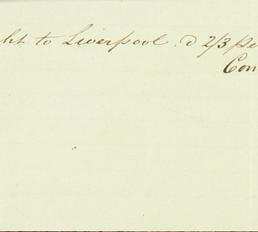 ht to Liverpool. d 2/3 pe
Con